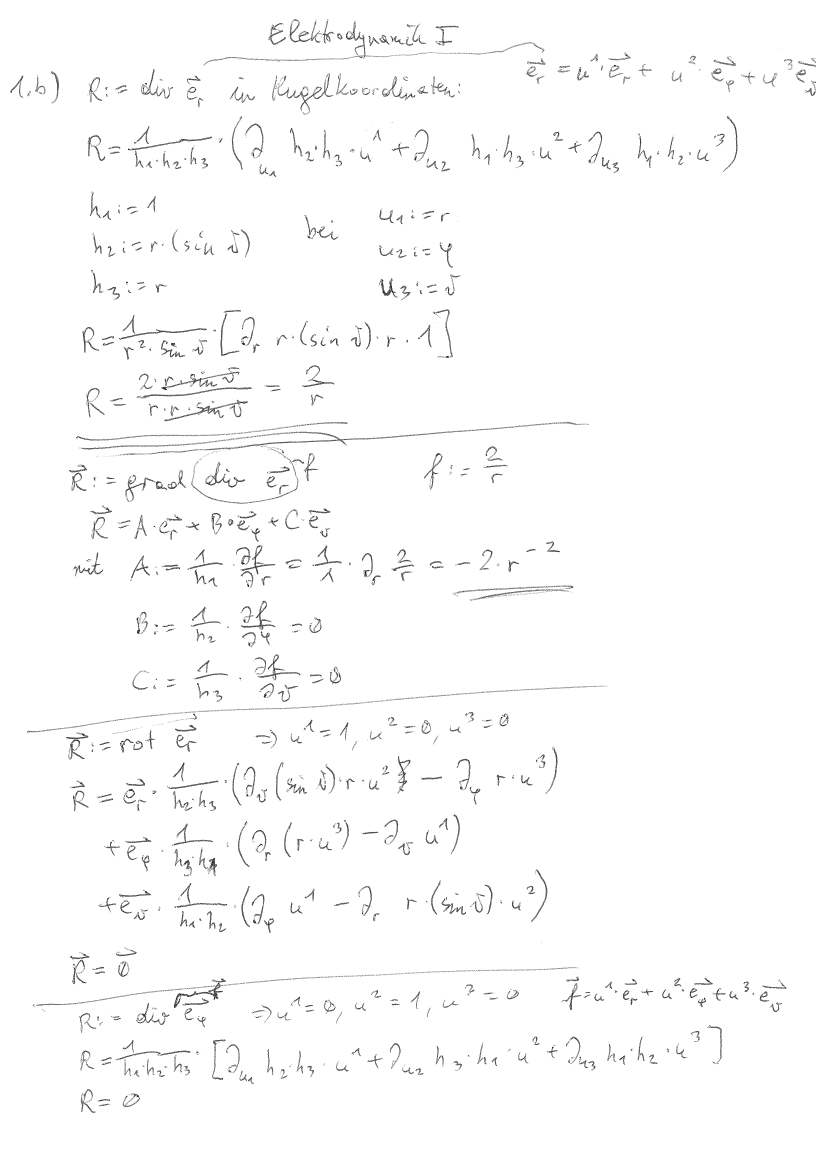 Elektrodynamik I
1.b) R := div e⃗_r in Kugelkoordinaten: e⃗_r = u¹·e⃗_r + u²·e⃗_φ + u³ e⃗_ϑ
R = 1/(h₁·h₂·h₃) · (∂_u₁ h₂·h₃·u¹ + ∂_u₂ h₁·h₃·u² + ∂_u₃ h₁·h₂·u³)
h₁ := 1
h₂ := r·(sin ϑ) bei u₁ := r
h₃ := r u₂ := φ
u₃ := ϑ
R = 1/(r²·sin ϑ) · [∂_r r·(sin ϑ)·r·1]
R = (2·r·sin ϑ)/(r·r·sin ϑ) = 2/r
R⃗ := grad (div e⃗_r) f f := 2/r
R⃗ = A·e⃗_r + B·e⃗_φ + C·e⃗_ϑ
mit A := 1/h₁ · ∂f/∂r = 1/1 · ∂_r 2/r = -2·r⁻²
B := 1/h₂ · ∂f/∂φ = 0
C := 1/h₃ · ∂f/∂ϑ = 0
R⃗ := rot e⃗_r ⇒ u¹=1, u²=0, u³=0
R⃗ = e⃗_r · 1/(h₂·h₃) · (∂_ϑ (sin ϑ)·r·u² − ∂_φ r·u³)
+ e⃗_φ · 1/(h₃·h₁) · (∂_r (r·u³) − ∂_ϑ u¹)
+ e⃗_ϑ · 1/(h₁·h₂) · (∂_φ u¹ − ∂_r r·(sin ϑ)·u²)
R⃗ = 0⃗
R := div e⃗_φ ⇒ u¹=0, u²=1, u³=0 f⃗ = u¹·e⃗_r + u²·e⃗_φ + u³·e⃗_ϑ
R = 1/(h₁·h₂·h₃) · [∂_u₁ h₂·h₃·u¹ + ∂_u₂ h₃·h₁·u² + ∂_u₃ h₁·h₂·u³]
R = 0